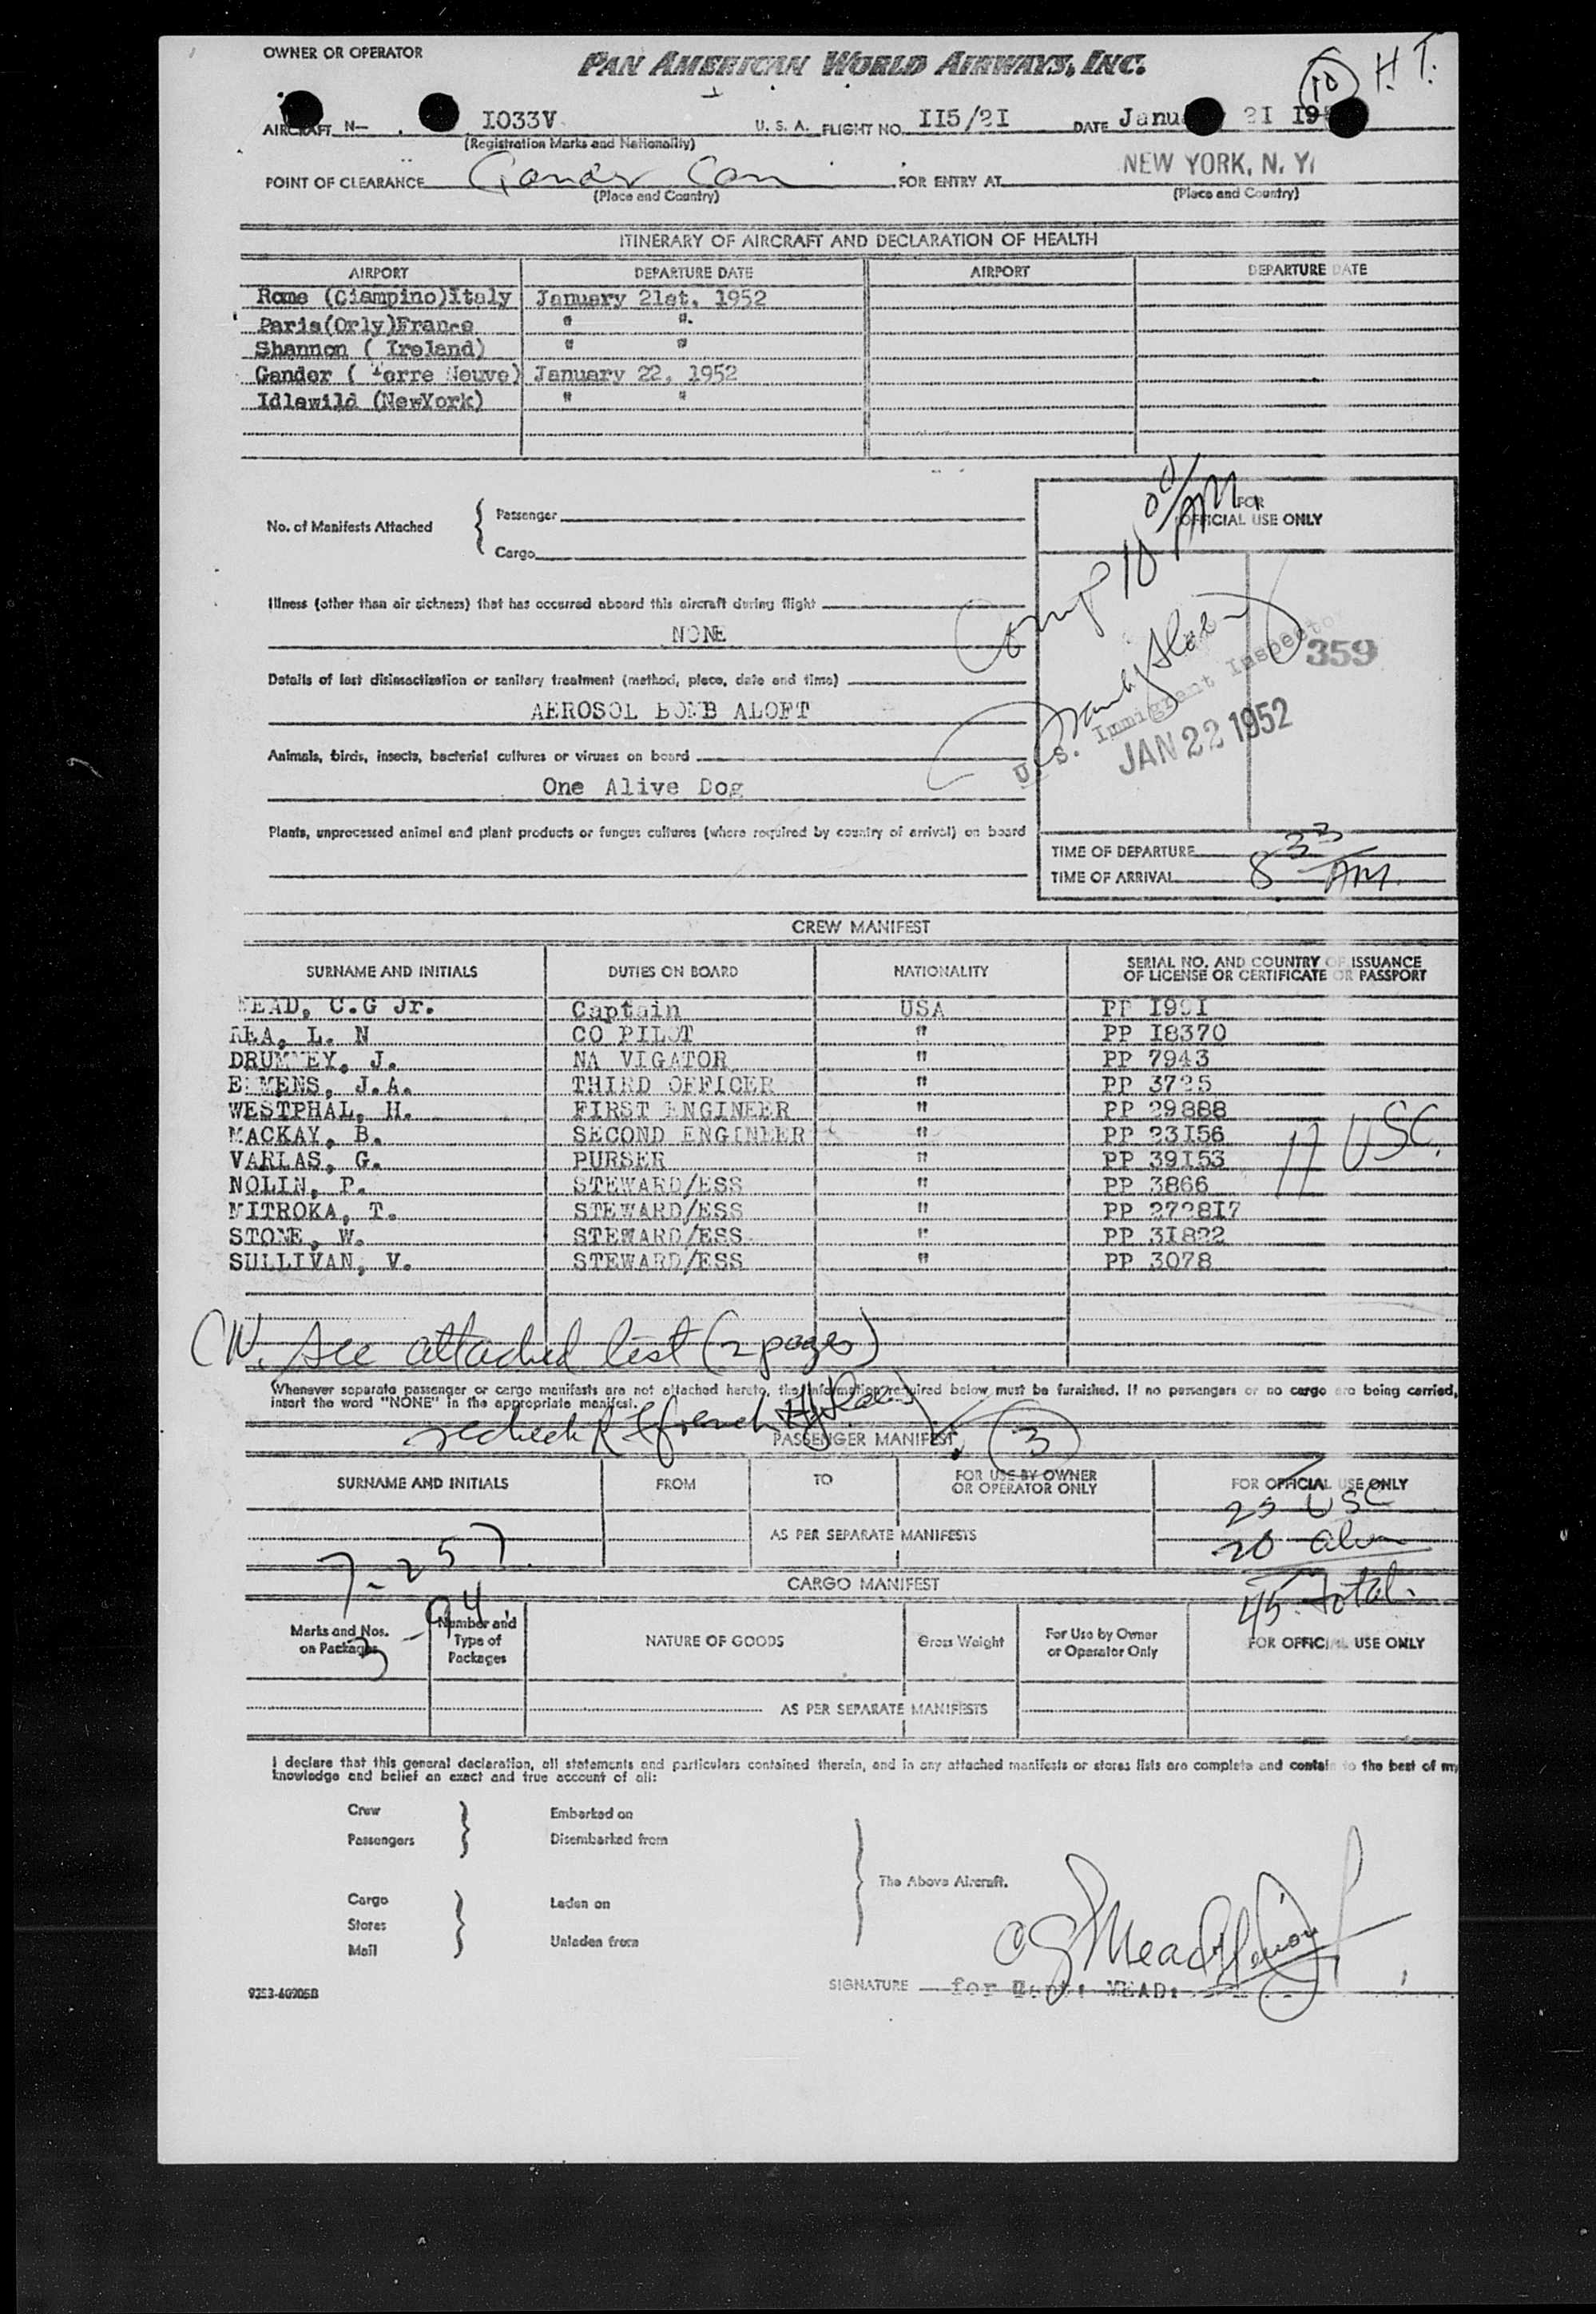 OWNER OR OPERATOR PAN AMERICAN WORLD AIRWAYS, INC. 10 H.T.
AIRCRAFT N— 1033V U. S. A. FLIGHT NO. II5/2I DATE 2I
(Registration Marks and Nationality)
POINT OF CLEARANCE Gander Can FOR ENTRY AT NEW YORK, N. Y.
(Place and Country) (Place and Country)
ITINERARY OF AIRCRAFT AND DECLARATION OF HEALTH
AIRPORT DEPARTURE DATE AIRPORT DEPARTURE DATE
Rome (Ciampino)Italy January 21st, 1952
Paris(Orly)France " "
Shannon ( Ireland) " "
Gander ( Terre Neuve) January 22, 1952
Idlewild (NewYork) " "
No. of Manifests Attached { Passenger
Cargo
FOR
OFFICIAL USE ONLY
Comp 10 00/AM
Illness (other than air sickness) that has occurred aboard this aircraft during flight
NONE
359
Details of last disinsectization or sanitary treatment (method, place, date and time)
AEROSOL BOMB ALOFT
U. S. Immigrant Inspector
JAN 22 1952
Animals, birds, insects, bacterial cultures or viruses on board
One Alive Dog
Plants, unprocessed animal and plant products or fungus cultures (where required by country of arrival) on board
TIME OF DEPARTURE
TIME OF ARRIVAL 8 33 AM.
CREW MANIFEST
SURNAME AND INITIALS DUTIES ON BOARD NATIONALITY SERIAL NO. AND COUNTRY OF ISSUANCE
OF LICENSE OR CERTIFICATE OR PASSPORT
MEAD, C.G Jr. Captain USA PP
REA, L. N CO PILOT " PP I8370
DRUMMEY, J. NA VIGATOR " PP 7943
J.A. THIRD OFFICER " PP 3725
WESTPHAL, H. FIRST ENGINEER " PP 29888
MACKAY, B. SECOND ENGINEER " PP 23I56
VARLAS, G. PURSER " PP 39I53
11 USC.
NOLIN, P. STEWARD/ESS " PP 3866
MITROKA, T. STEWARD/ESS " PP 2728I7
STONE, W. STEWARD/ESS " PP 3I822
SULLIVAN, V. STEWARD/ESS " PP 3078
see attached list (2 pages)
Whenever separate passenger or cargo manifests are not attached hereto, the information required below must be furnished. If no passengers or no cargo are being carried,
insert the word "NONE" in the appropriate manifest.
PASSENGER MANIFEST 3
SURNAME AND INITIALS FROM TO FOR USE BY OWNER
OR OPERATOR ONLY FOR OFFICIAL USE ONLY
25 USC
AS PER SEPARATE MANIFESTS
20 alien
7-257
CARGO MANIFEST
45 Total
3-94
Marks and Nos.
on Packages Number and
Type of
Packages NATURE OF GOODS Gross Weight For Use by Owner
or Operator Only FOR OFFICIAL USE ONLY
AS PER SEPARATE MANIFESTS
I declare that this general declaration, all statements and particulars contained therein, and in any attached manifests or stores lists are complete and contain to the best of my
knowledge and belief an exact and true account of all:
Crew Embarked on
Passengers Disembarked from
The Above Aircraft.
Cargo Laden on
Stores
Mail Unladen from
CG Mead
SIGNATURE for Capt: MEAD:
9353-40905B